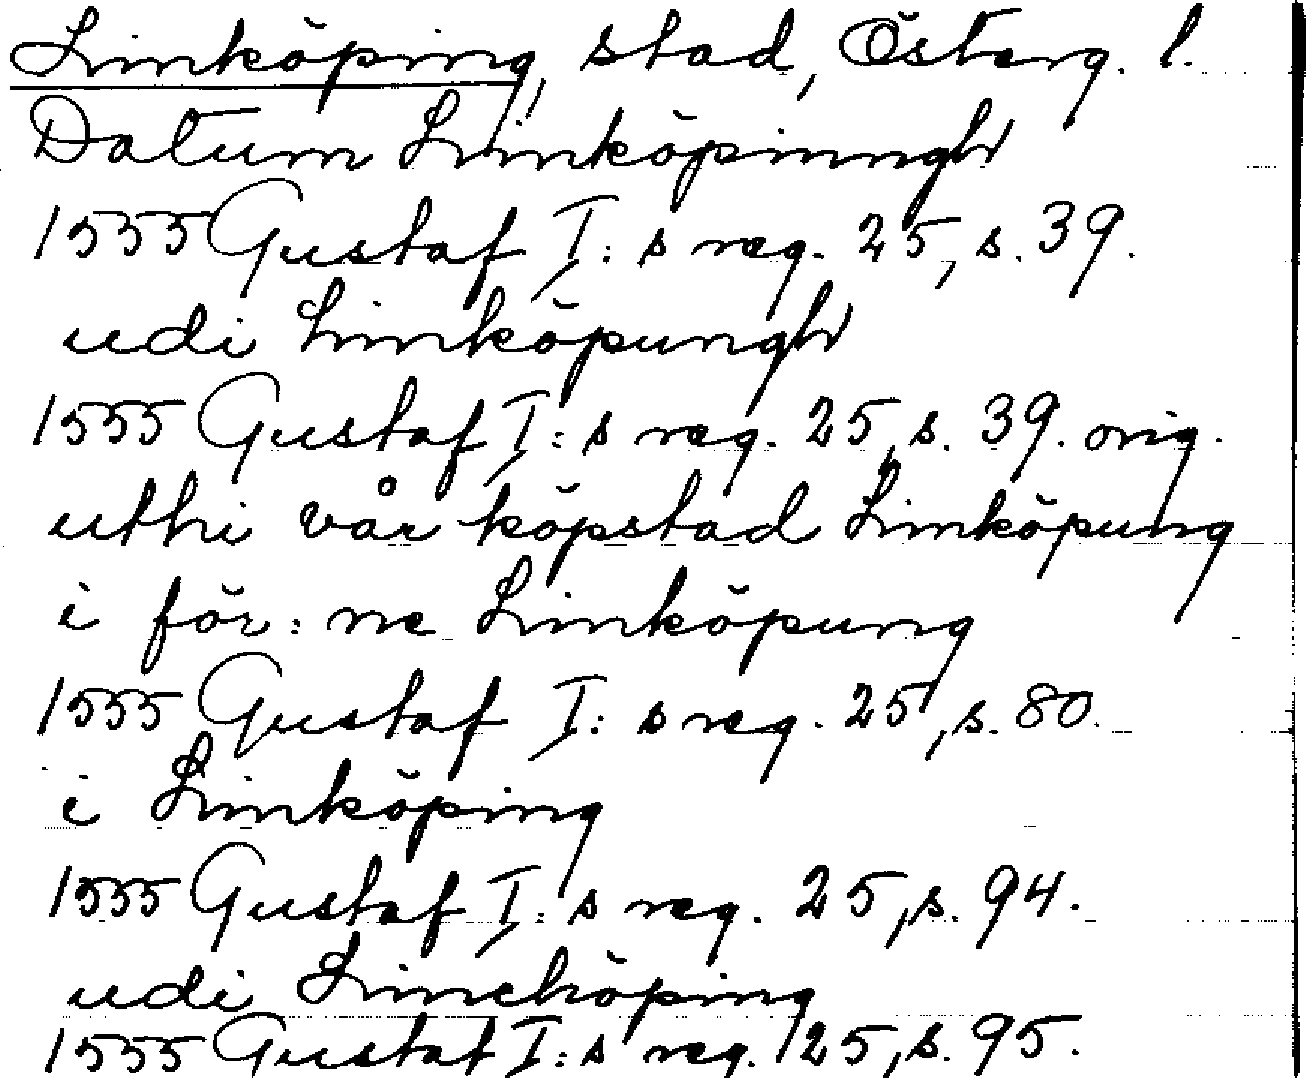 Linköping, stad, Österg. l.
Datum Linköpinngh
1555 Gustaf I:s reg. 25, s. 39.
udi Linköpungh
1555 Gustaf I:s reg. 25, s. 39. orig.
uthi vår köpstad Linköpung
i för:ne Linköpung
1555 Gustaf I:s reg. 25, s. 80.
i Linköping
1555 Gustaf I:s reg. 25, s. 94.
udi Linchöping
1555 Gustaf I:s reg. 25, s. 95.